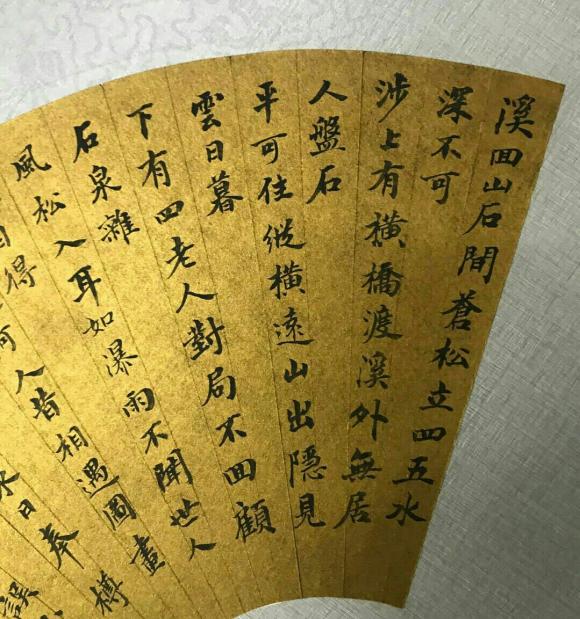 溪回山石間蒼松立四五水
深不可
涉上有橫橋渡溪外無居
人盤石
平可住縱橫遠山出隱見
雲日暮
下有四老人對局不回顧
石泉雜
風松入耳如瀑雨不聞世人
得
何人昔相遇圖畫
日奉樽